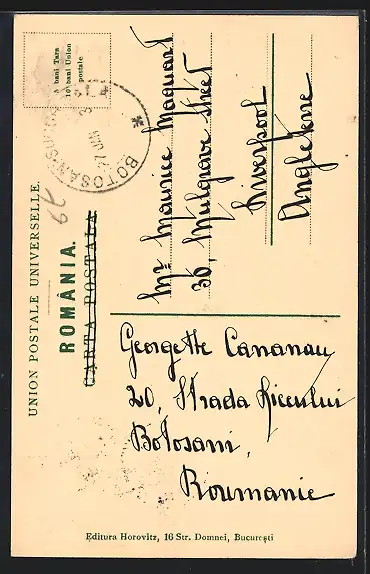 5 bani Tara
10 bani Union
postale
BOTOSANI
24 JUN
UNION POSTALE UNIVERSELLE.
ROMÂNIA.
CARTA POSTALA
Mr Maurice Maquart
36, Mulgrave Street
Liverpool
Angleterre
Georgette Cananau
20, Strada Liceului
Botosani,
Roumanie
Editura Horovitz, 16 Str. Domnei, Bucureşti